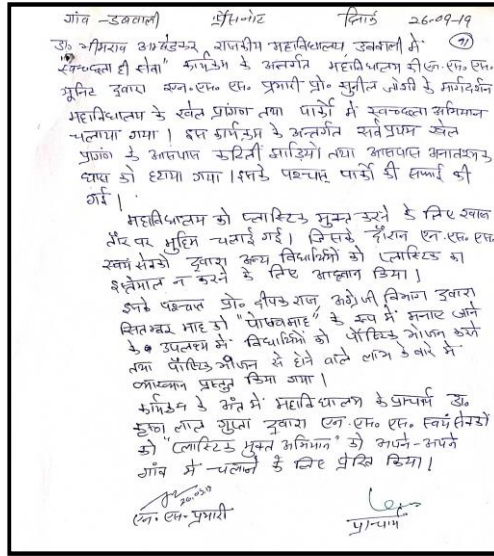 गांव - डबवाली प्रैसनोट दिनांक 26-09-19
डॉ. भीमराव अम्बेडकर राजकीय महाविद्यालय, डबवाली में
"स्वच्छता ही सेवा" कार्यक्रम के अन्तर्गत महाविद्यालय की एन.एस.एस.
यूनिट द्वारा एन.एस.एस. प्रभारी प्रो. सुनील जोशी के मार्गदर्शन
महाविद्यालय के खेल प्रांगण तथा पार्कों में स्वच्छता अभियान
चलाया गया। इस कार्यक्रम के अन्तर्गत सर्वप्रथम खेल
प्रांगण के आसपास कटिली झाड़ियों तथा आसपास अनावश्यक
घास को हटाया गया। इसके पश्चात् पार्कों की सफाई की
गई।
महाविद्यालय को प्लास्टिक मुक्त करने के लिए खास
तौर पर मुहिम चलाई गई। जिसके दौरान एन.एस.एस.
स्वयं सेवकों द्वारा अन्य विद्यार्थियों को प्लास्टिक का
इस्तेमाल न करने के लिए आह्वान किया।
इसके पश्चात प्रो. दीपक राज, अंग्रेजी विभाग द्वारा
सितम्बर माह को "पोषणमाह" के रूप में मनाए जाने
के उपलक्ष्य में विद्यार्थियों को पौष्टिक भोजन करने
तथा पौष्टिक भोजन से होने वाले लाभ के बारे में
व्याख्यान प्रस्तुत किया गया।
कार्यक्रम के अंत में महाविद्यालय के प्राचार्य डॉ.
कृष्ण लाल गुप्ता द्वारा एन.एस.एस. स्वयं सेवकों
को "प्लास्टिक मुक्त अभियान" को अपने-अपने
गांव में चलाने के लिए प्रेरित किया।
एन.एस. प्रभारी प्राचार्य